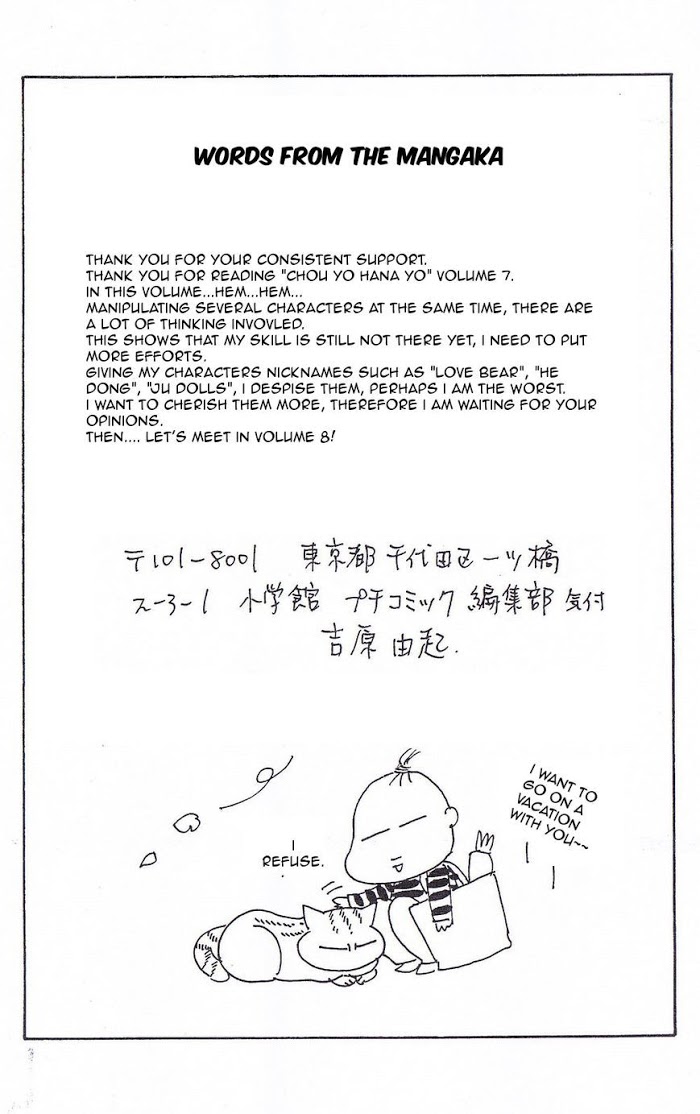 WORDS FROM THE MANGAKA
THANK YOU FOR YOUR CONSISTENT SUPPORT.
THANK YOU FOR READING "CHOU YO HANA YO" VOLUME 7.
IN THIS VOLUME...HEM...HEM...
MANIPULATING SEVERAL CHARACTERS AT THE SAME TIME, THERE ARE
A LOT OF THINKING INVOVLED.
THIS SHOWS THAT MY SKILL IS STILL NOT THERE YET, I NEED TO PUT
MORE EFFORTS.
GIVING MY CHARACTERS NICKNAMES SUCH AS "LOVE BEAR", "HE
DONG", "JU DOLLS", I DESPISE THEM, PERHAPS I AM THE WORST.
I WANT TO CHERISH THEM MORE, THEREFORE I AM WAITING FOR YOUR
OPINIONS.
THEN.... LET'S MEET IN VOLUME 8!
〒101-8001 東京都 千代田区一ツ橋
2-3-1 小学館 プチコミック 編集部 気付
吉原 由起.
I WANT TO
GO ON A
VACATION
WITH YOU~~
I
REFUSE.